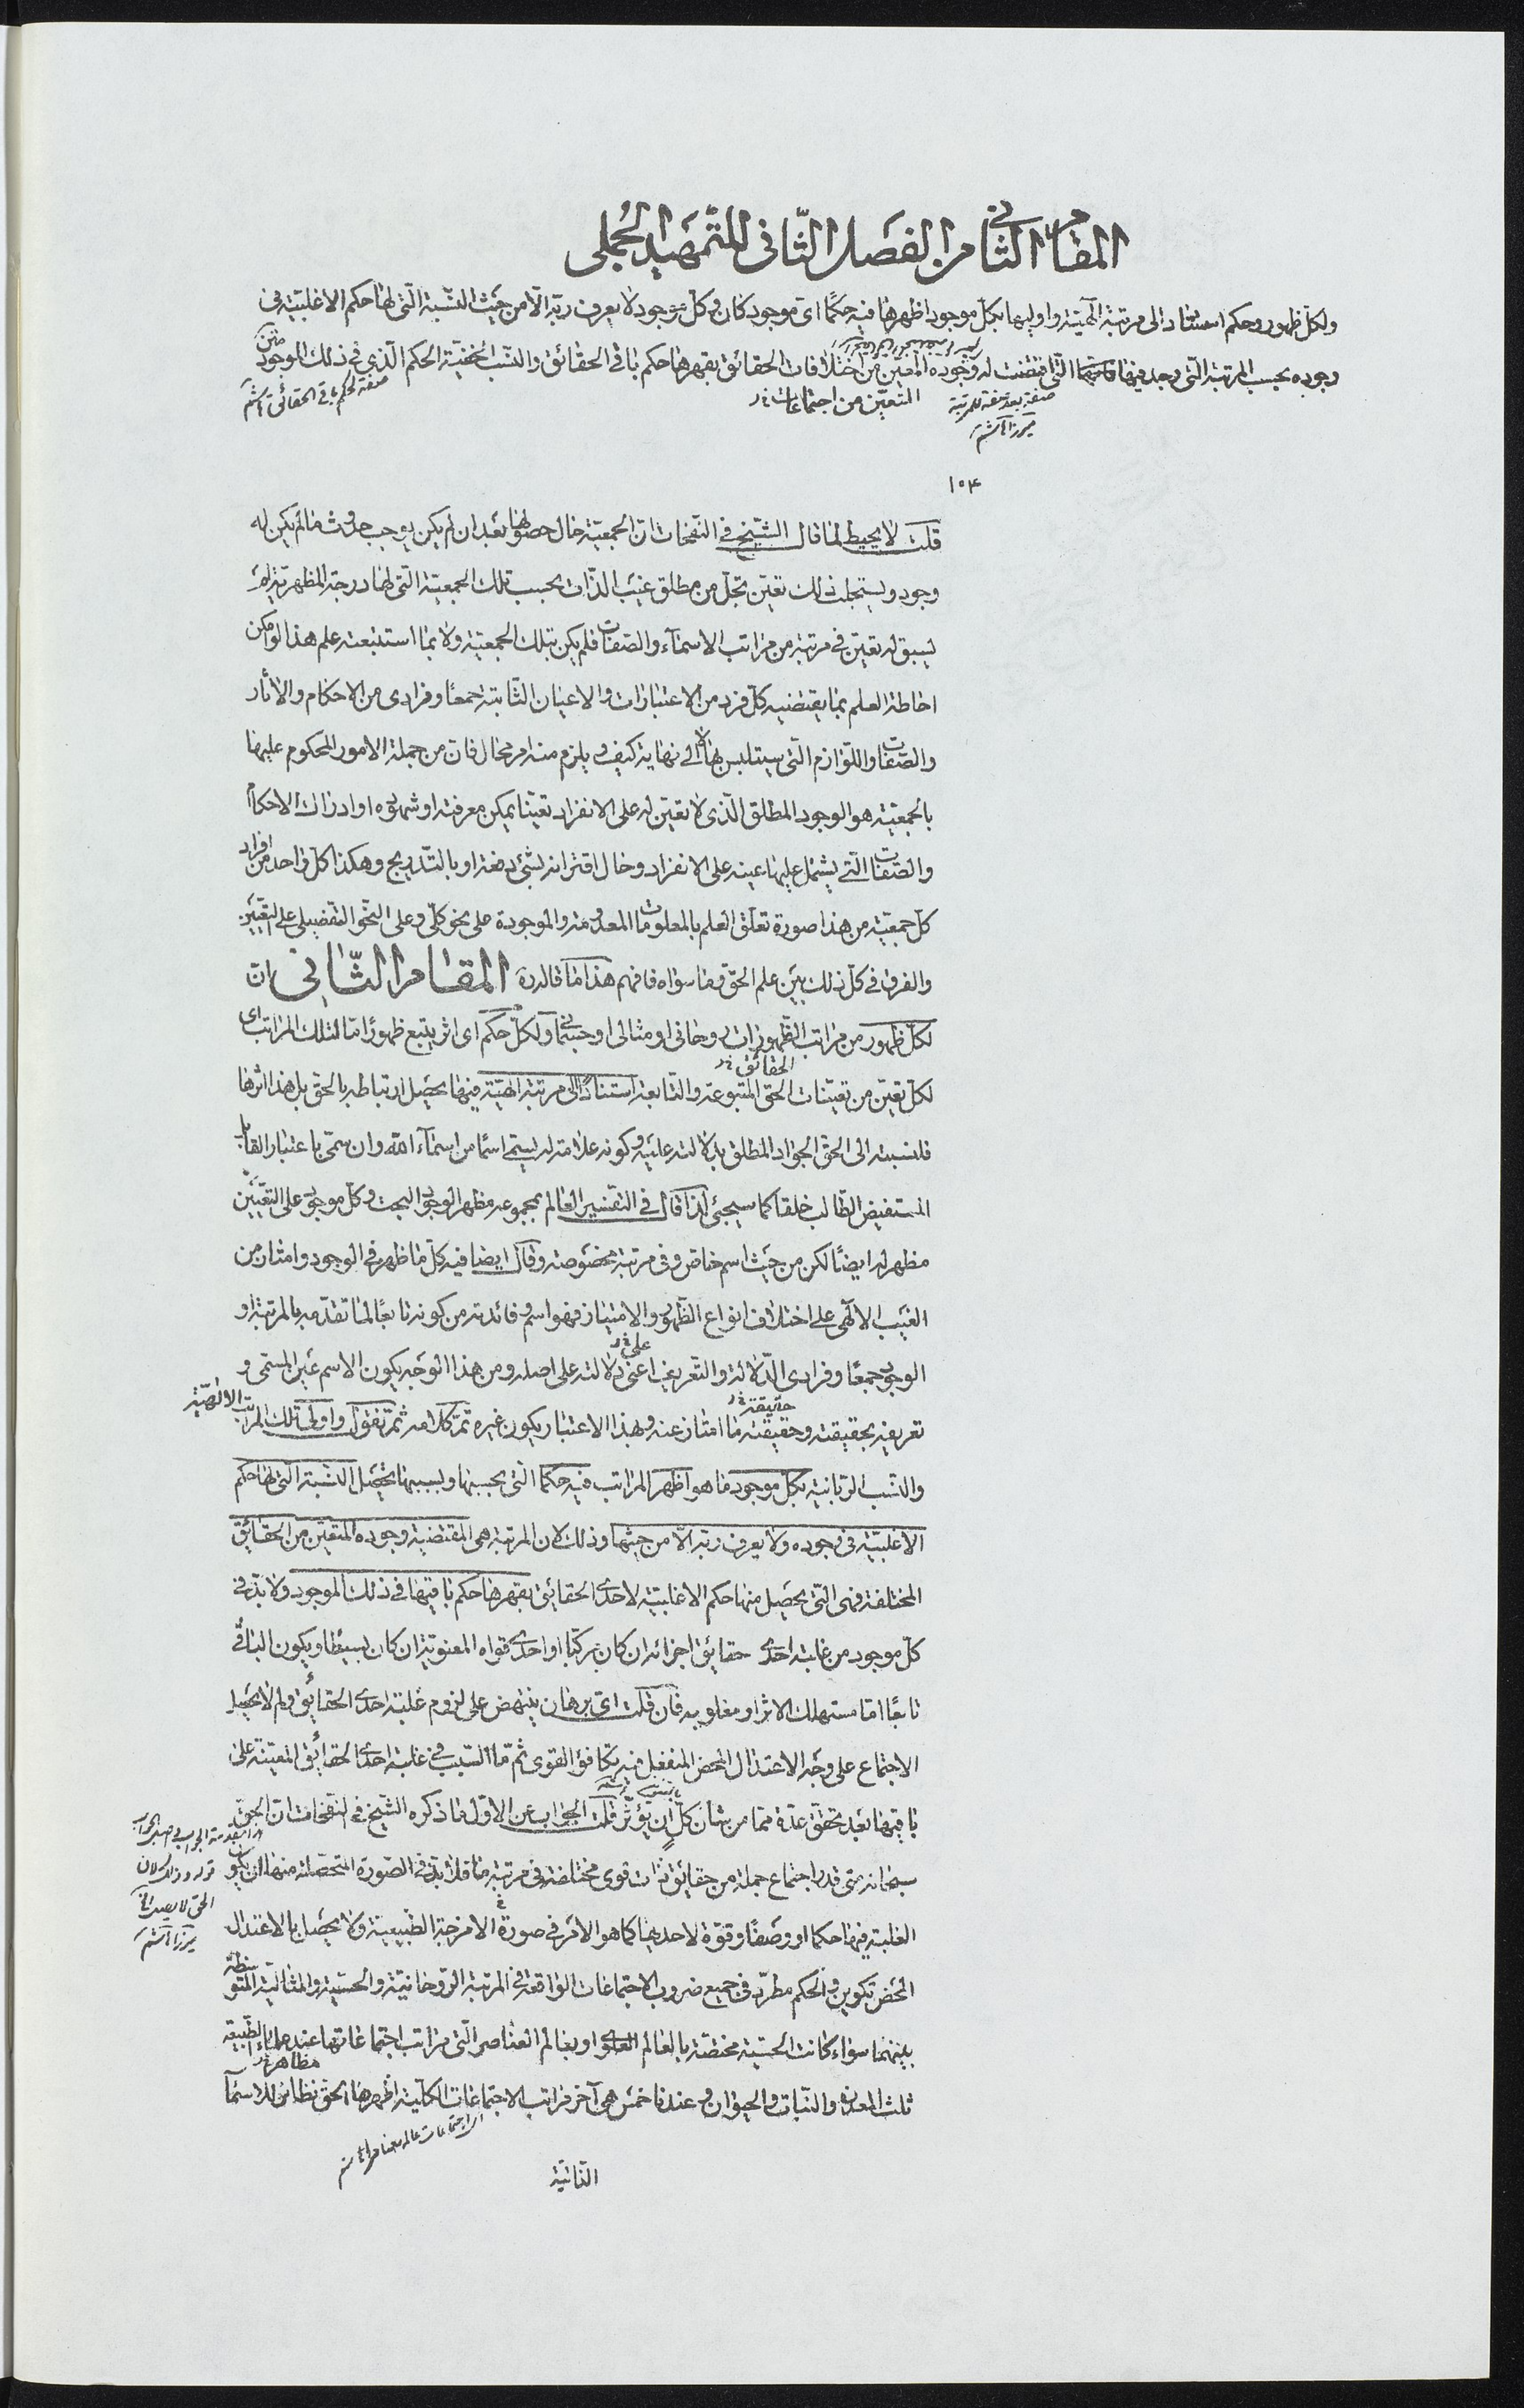 المقام الثانى من الفصل الثّانى للتّمهيد الجملى
ولكلّ ظهور وحكم استناد الى مرتبة الٓهيّة واوليها بكلّ موجود اظهرها فيه حكمًا اىّ موجود كان وكلّ موجود لا يعرف ربّه الّا من حيث النّسبة الّتى لها حكم الاغلبيّة فى
وجوده بحسب المرتبة الّتى وجد فيها الّتى اقتضت له وجوده المتعيّن من اختلافات الحقائق بقهرها حكم باقى الحقائق والنّسب الخفيّة الحكم الّذى فى ذلك الموجود متن
المتعيّن من اجتماعات خ‌ر
صفة بعد صفة للمرتبة
ميرزا هاشم
صفة لحكم باقى الحقائق
١٥٤
قلت لا يحيط لما قال الشّيخ فى النّفحات انّ الجمعيّة حال حصولها بعد ان لم يكن يوجب حدوث ما لم يكن له
وجود ويستجلب ذلك تعيّن تجلّ من مطلق غيب الذّات بحسب تلك الجمعيّة الّتى لها درجة المظهريّة لم
يسبق له تعيّن فى مرتبة من مراتب الاسمآء والصّفات فلم يكن بتلك الجمعيّة ولا بما استتبعته علم هذا لو امكن
احاطة العلم بما يقتضيه كلّ فرد من الاعتبارات والاعيان الثّابتة جمعًا وفرادى من الاحكام والاٰثار
والصّفات واللّوازم الّتى سيتلبس بها لا الى نهاية كيف ويلزم منه امر محال فانّ من جملة الامور المحكوم عليها
بالجمعيّة هو الوجود المطلق الّذى لا تعيّن له على الانفراد تعيّنا يمكن معرفته او شهوده او ادراك الاحكام
والصّفات الّتى يشتمل عليها عينه على الانفراد وحال اقترانه بشئ دفعة او بالتّدريج وهكذا كلّ واحد من افراد
كلّ جمعيّة من هذا صورة تعلّق العلم بالمعلومات المعدومة والموجودة على نحو كلّى وعلى النّحو التّفصيلى على التّعيّن
والفرق فى كلّ ذلك بين علم الحقّ وما سواه فافهم هذا ما قاله ره المقام الثّانى انّ
لكلّ ظهور من مراتب الظّهورات روحانى او مثالى او جسمانى ولكلّ حكم اى اثر يتبع ظهورًا مّا لتلك المراتب اى
الحقائق خ‌ر
لكلّ تعيّن من تعيّنات الحقّ المتبوعة والتّابعة استنادًا الى مرتبة الهيّة فيها يحصل ارتباطه بالحقّ بل هذا اثرها
فلنسبته الى الحقّ الجواد المطلق بدلالته عليه وكونه علامة له يسمّى اسمًا من اسمآء الله وان سمّى باعتبار القابل
المستفيض الطّالب خلقا كما سيجئى لذا قال فى التّفسير العالم بمجموعه مظهر الوجود البحت وكلّ موجود على التّعيين
مظهر له ايضًا لكن من حيث اسم خاصّ وفى مرتبة مخصوصة وقال ايضا فيه كلّ ما ظهر فى الوجود وامتاز من
الغيب الالٓهى على اختلاف انواع الظّهور والامتياز فهو اسم وفائدته من كونه تابعًا لما تقدّمه بالمرتبة او
على خ‌ر
الوجود جمعًا وفرادى الدّلالة والتّعريف اعنى دلالته على اصله ومن هذا الوجه يكون الاسم عين المسمّى و
حقيقته خ‌ر
تعريفه بحقيقته وحقيقته ما امتاز عنه وبهذا الاعتبار يكون غيره تمّ كلامه ثمّ نقول واولى تلك المراتب الالٰهيّة
والنّسب الرّبانية بكلّ موجود ما هو اظهر المراتب فيه حكما الّتى بحسبها وبسببها يحصل النّسبة الّتى لها حكم
الاغلبيّة فى وجوده ولا يعرف ربّه الّا من حيثها وذلك لان المرتبة هى المقتضية وجوده المتعيّن من الحقائق
المختلفة فهى الّتى يحصل منها حكم الاغلبيّة لاحدى الحقائق بقهرها حكم باقيها فى ذلك الموجود ولا بدّ فى
كلّ موجود من غلبة احدى حقائق اجزائه ان كان مركّبا او احدى قواه المعنويّة ان كان بسيطا ويكون الباقى
تابعًا امّا مستهلك الاثر او مغلوبه فان قلت اىّ برهان ينتهض على لزوم غلبة احدى الحقائق ولم لا يحصل
الاجتماع على وجه الاعتدال المحض المنفعل فيه تكافؤ القوى ثمّ ما السّبب فى غلبة احدى الحقائق المعيّنة على
باقيها بعد تحقّق عدّة ممّا من شأن كلّ ان يؤثّر قلت الجواب عن الاوّل ما ذكره الشّيخ فى النّفحات انّ الحقّ
سبحانه متى قدر اجتماع جملة من حقائق ذات قوى مختلفة فى مرتبة ما فلا بدّ فى الصّورة المتحصّلة منها ان يكون
الغلبة فيها حكما او وصفًا وقوّة لاحديها كما هو الامر فى صورة الامزجة الطّبيعية ولا يحصل بالاعتدال
المحض تكوين والحكم مطّرد فى جميع ضروب الاجتماعات الواقعة فى المرتبة الرّوحانيّة والحسّية والمثاليّة المتوسّطة
بينهما سواء كانت الحسّية مختصّة بالعالم العلوى او بعالم العناصر الّتى مراتب اجتماعاتها عند علمآء الطّبيعة
مظاهر خ‌ر
ثلث المعدن والنّبات والحيوان وعندنا خمس هى آخر مراتب الاجتماعات الكلّية اظهرها الحقّ نظائر للاسمآء
الذّاتيّة
قوله وذلك لان